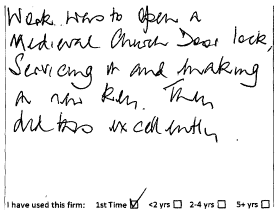 Work was to open a
Medieval Church Door lock,
Servicing it and making
a new key. They
did this excellently
I have used this firm: 1st Time ☑ <2 yrs ☐ 2-4 yrs ☐ 5+ yrs ☐